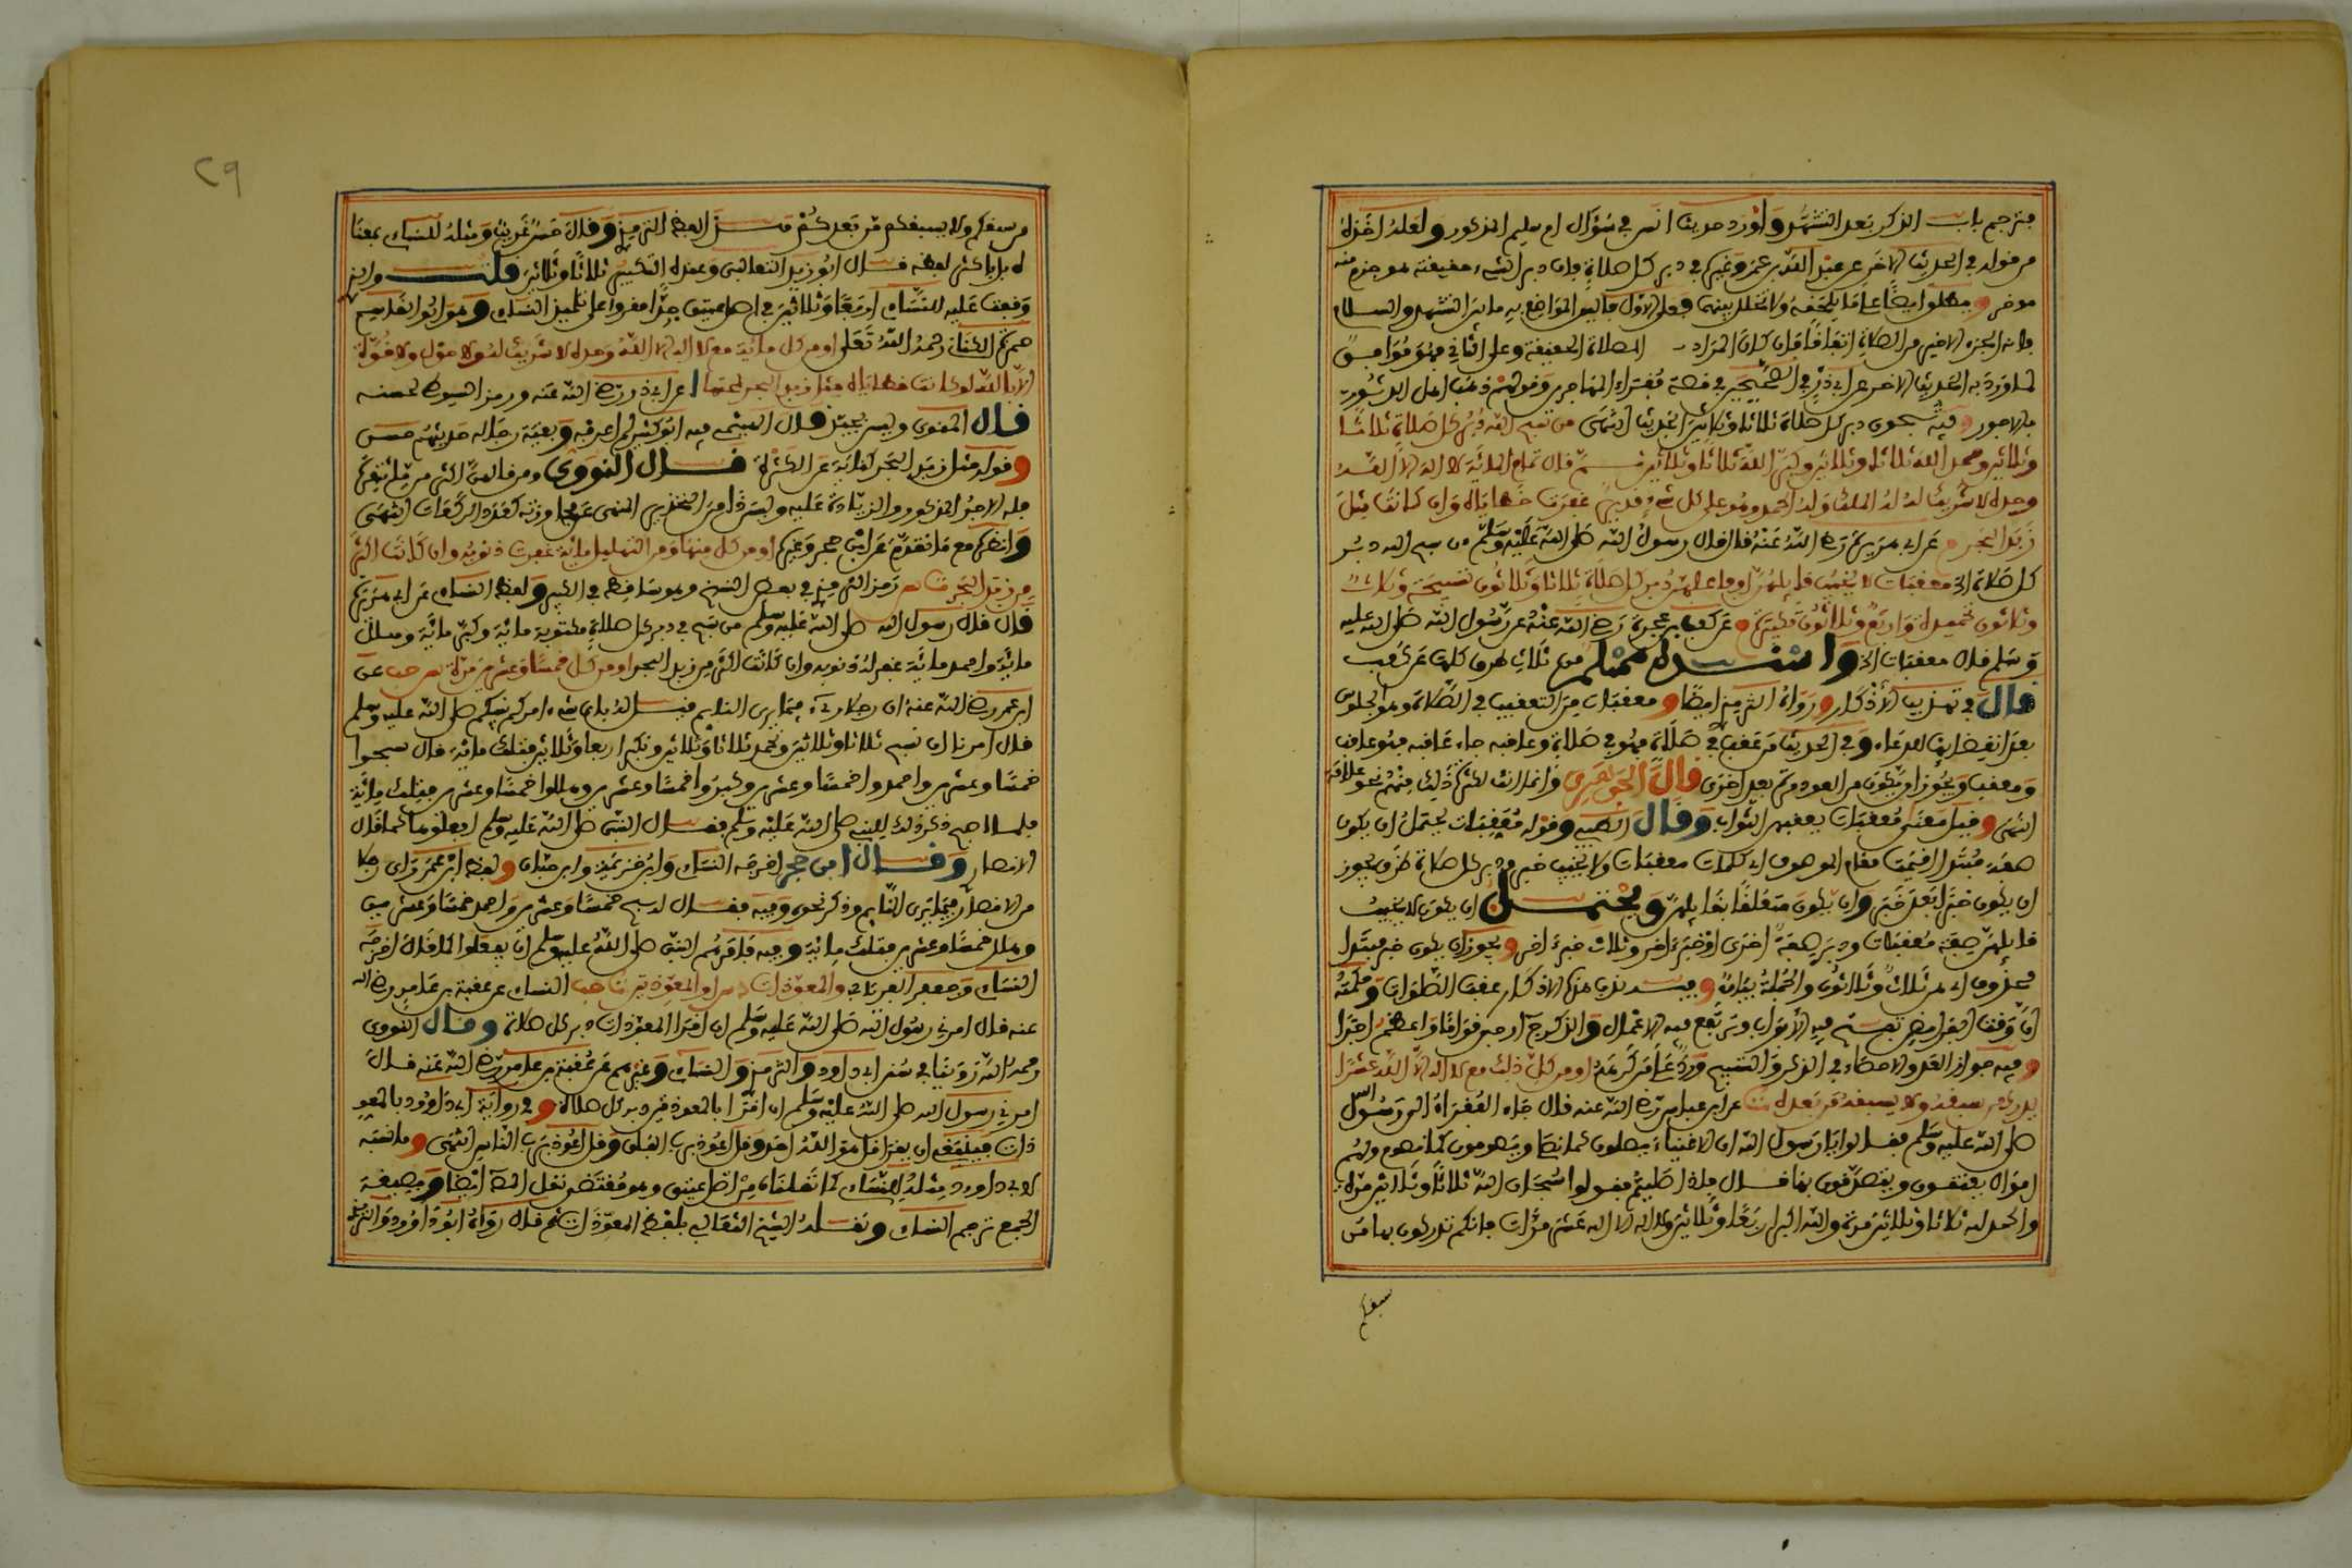 فترجم باب الذكر بعد التشهد وأورد حديث انس في سؤال ام سليم المذكور ولعله اخذه
من قوله في الحديث الاخر عن عبد الله بن عمرو وغيره في دبر كل صلاة فان دبر الشيء حقيقة هو جزء منه
مؤخر ويطلق ايضا على ما يلحقه ولا تخلل بينهما فعلى الاول فاليق المواضع به ما بين التشهد والسلام
فانه الجزء الاخير من الصلاة اتفاقا فان كان المراد الصلاة الحقيقية وعلى الثاني فهو موافق
لما ورد به الحديث الاخر عن ابي ذر في الصحيحين في قصة فقراء المهاجرين وقولهم ذهب اهل الدثور
بالاجور وفيه تسبحون دبر كل صلاة ثلاثا وثلاثين الحديث انتهى من سبح الله دبر كل صلاة ثلاثا
وثلاثين وحمد الله ثلاثا وثلاثين وكبر الله ثلاثا وثلاثين ثم قال تمام المائة لا اله الا الله
وحده لا شريك له له الملك وله الحمد وهو على كل شيء قدير غفرت خطاياه وان كانت مثل
زبد البحر م عن ابي هريرة رضي الله عنه قال قال رسول الله صلى الله عليه وسلم من سبح الله دبر
كل صلاة الخ معقبات لا يخيب قائلهن او فاعلهن دبر كل صلاة ثلاثا وثلاثون تسبيحة وثلاث
وثلاثون تحميدة واربع وثلاثون تكبيرة م عن كعب بن عجرة رضي الله عنه عن رسول الله صلى الله عليه
وسلم قال معقبات الخ واسنده مسلم من ثلاث طرق كلها عن كعب
قال في تهذيب الأذكار ورواه الترمذي ايضا ومعقبات من التعقيب في الصلاة وهو الجلوس
بعد انقضائها لدعاء وفي الحديث من عقب في صلاة فهو في صلاة وعاقبه جاء عاقبه فهو عاقب
ومعقب ويجوز ان يكون من العود مرة بعد اخرى قال الجوهري وانما انث لكثرة ذلك منهم نحو علامة
انتهى وقيل معنى معقبات يعقبهن الثواب وقال الطيبي وقوله معقبات يحتمل ان يكون
صفة مبتدا اقيمت مقام الموصوف اي كلمات معقبات ولا يخيب خبره ودبر كل صلاة ظرف يجوز
ان يكون خبرا بعد خبر وان يكون متعلقا بقائلهن ويحتمل ان يكون لا يخيب
قائلهن صفة معقبات ودبر صفة اخرى او خبرا اخر وثلاث خبر اخر ويجوز ان يكون خبر مبتدا
محذوف اي هن ثلاث وثلاثون والجملة بيان وفيه ندب هذه الاذكار عقب الصلوات وحكمته
ان وقت الفرايض تفتح فيه الأبواب وترفع فيه الاعمال والذكر حينئذ ارجى ثوابا واعظم اجرا
وفيه جواز العد والاحصاء في الذكر والتسبيح ورد على من كرهه او من كل ذلك مع لا اله الا الله عشرا
يدرك من سبقه ولا يسبقه من بعده ت عن ابن عباس رضي الله عنه قال جاء الفقراء الى رسول الله
صلى الله عليه وسلم فقالوا يا رسول الله ان الاغنياء يصلون كما نصلي ويصومون كما نصوم ولهم
اموال يعتقون ويتصدقون بها قال فاذا صليتم فقولوا سبحان الله ثلاثا وثلاثين مرة
والحمد لله ثلاثا وثلاثين مرة والله اكبر اربعا وثلاثين ولا اله الا الله عشر مرات فانكم تدركون بها من
سبقكم
من سبقكم ولا يسبقكم من بعدكم هذا لفظ الترمذي وقال حسن غريب ومثله للنساء بمعنا
قال ابو زيد الثعالبي وعنده التكبير ثلاثا وثلاثين قلت والذي
وقفت عليه للنساء اربعا وثلاثين في اصل عتيق جدا مقروء على تلميذ النساء وهو ابو القاسم
حمزة الكناني رحمه الله تعالى او من كل مائة مع لا اله الا الله وحده لا شريك له ولا حول ولا قوة
الا بالله لو كانت خطاياه مثل زبد البحر لمحتها ا عن ابي ذر رضي الله عنه ورمز السيوطي لحسنه
قال المنوي وليس بجيد قال الهيثمي فيه ابو كثير لم اعرفه وبقية رجاله حديثهم حسن
وقوله مثل زبد البحر كناية عن الكثرة قال النووي ومن قالهن اكثر من مائة مرة
فله الاجر المذكور والزيادة عليه وليس ذا من التحذير المنهي عن مجاوزته كعدد الركعات انتهى
وانظره مع ما تقدم عن ابن حجر وغيره او من كل منها ومن التهليل مائة غفرت ذنوبه وان كانت اكثر
من زبد البحر ت س رمز الترمذي في بعض النسخ وهو ساقط في الكبير ولفظ النساء عن ابي هريرة
قال قال رسول الله صلى الله عليه وسلم من سبح في دبر كل صلاة مكتوبة مائة وكبر مائة وهلل
مائة واحمد مائة غفر له ذنوبه وان كانت اكثر من زبد البحر او من كل خمسا وعشرين مرة س حب عن
ابن عمر رضي الله عنه ان رجلا رءا فيما يرى النايم قيل له باي شيء امركم نبيكم صلى الله عليه وسلم
قال امرنا ان نسبح ثلاثا وثلاثين ونحمد ثلاثا وثلاثين ونكبر اربعا وثلاثين فتلك مائة قال سبحوا
خمسا وعشرين واحمدوا خمسا وعشرين وكبروا خمسا وعشرين وهللوا خمسا وعشرين فتلك مائة
فلما اصبح ذكر ذلك للنبي صلى الله عليه وسلم فقال النبي صلى الله عليه وسلم افعلوها كما قال
الانصاري وقال ابن حجر اخرجه النساء وابن خزيمة وابن حبان ولفظ ابن عمر رءاى رجلا
من الانصار فيما يرى النايم وذكر نحوه وفيه فقال له سبح خمسا وعشرين واحمد خمسا وعشرين
وهلل خمسا وعشرين فتلك مائة وفيه فامرهم النبي صلى الله عليه وسلم ان يفعلوا كما قال اخرجه
النساء وجعفر الفريابي والمعوذات د س او المعوذتين ت حب النساء عن عقبة بن عامر رضي الله
عنه قال امرني رسول الله صلى الله عليه وسلم ان اقرا المعوذات دبر كل صلاة وقال النووي
رحمه الله روينا في سنن ابي داود والترمذي والنساء وغيرهم عن عقبة بن عامر رضي الله عنه قال
امرني رسول الله صلى الله عليه وسلم ان اقرا بالمعوذتين دبر كل صلاة وفي رواية ابي داود بالمعو
ذات فينبغي ان يقرا قل هو الله احد وقل اعوذ برب الفلق وقل اعوذ برب الناس انتهى وما نسبه
لابي داود مثله للنساء كما نقلناه من اصل عتيق وهو مقتضى نقل ايضا وبصيغة
الجمع ترجم النساء ونقله الشيخ الثعالبي بلفظ المعوذات ثم قال رواه ابو داود والترمذي
٢٩